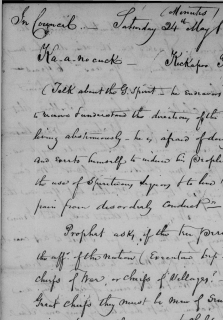 (Minutes
In Council. Saturday 24th May 1
Ka-a-no-cuck — Kickapoo
(Talk about the G. Spirit — he endeavors
to know & understand the directions of the
living abstemiously — he is afraid of
and exerts himself to induce his people
the use of Spirituous liquors & to
from disorderly conduct —
Prophet asks, if the
the affrs. of the nation (Executive
chiefs of War, or chiefs of Villages? —
Great Chiefs they must be men of